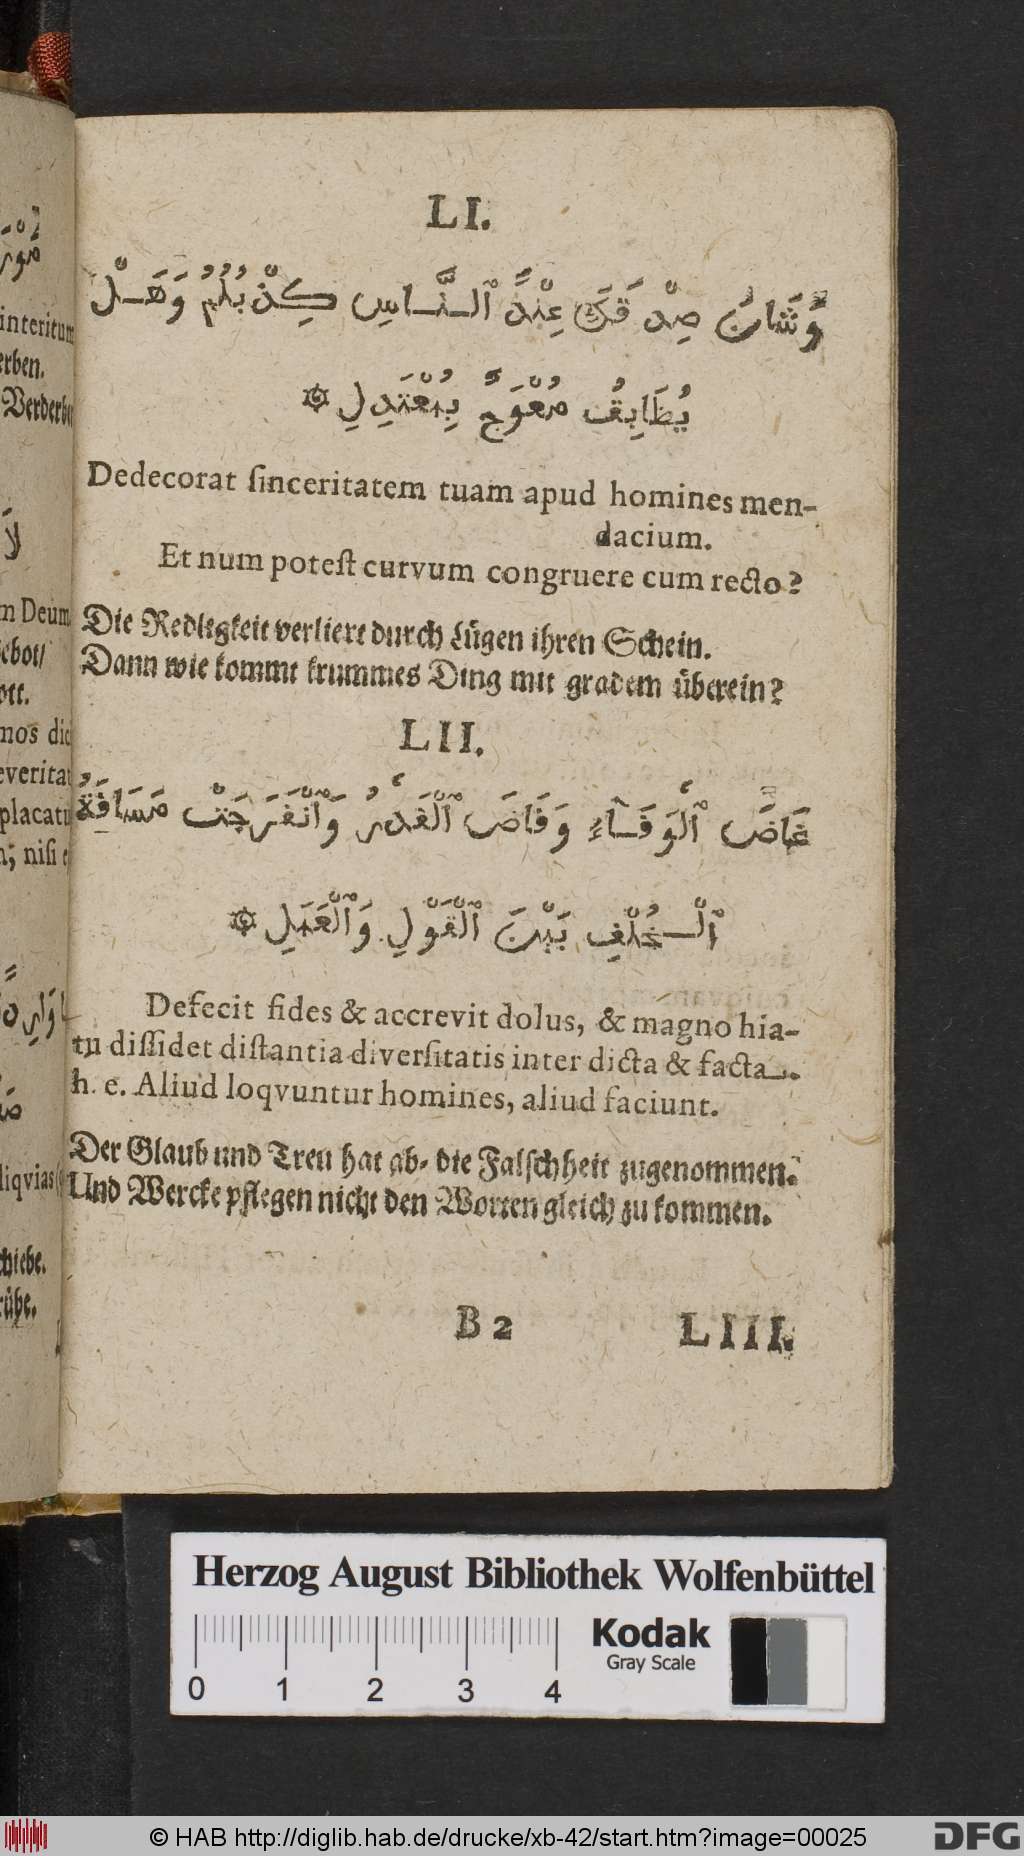 LI.
وَشَانَ صِدْقَكَ عِنْدَ ٱلنَّاسِ كِذْبُهُمُ وَهَلْ
يُطَابِقُ مُعْوَجٌّ بِمُعْتَدِلِ
Dedecorat sinceritatem tuam apud homines men-
dacium.
Et num potest curvum congruere cum recto?
Die Redligkeit verliert durch Lügen ihren Schein.
Dann wie kommt krummes Ding mit gradem überein?
LII.
غَاضَ ٱلْوَفَآءُ وَفَاضَ ٱلْغَدْرُ وَٱنْفَرَجَتْ مَسَافَةُ
ٱلْخُلْفِ بَيْنَ ٱلْقَوْلِ وَٱلْعَمَلِ
Defecit fides & accrevit dolus, & magno hia-
tu dissidet distantia diversitatis inter dicta & facta.
h. e. Aliud loqvuntur homines, aliud faciunt.
Der Glaub und Treu hat ab- die Falschheit zugenommen.
Und Wercke pflegen nicht den Worten gleich zu kommen.
B 2
LIII.
Herzog August Bibliothek Wolfenbüttel
Kodak
Gray Scale
0 1 2 3 4
© HAB http://diglib.hab.de/drucke/xb-42/start.htm?image=00025
DFG